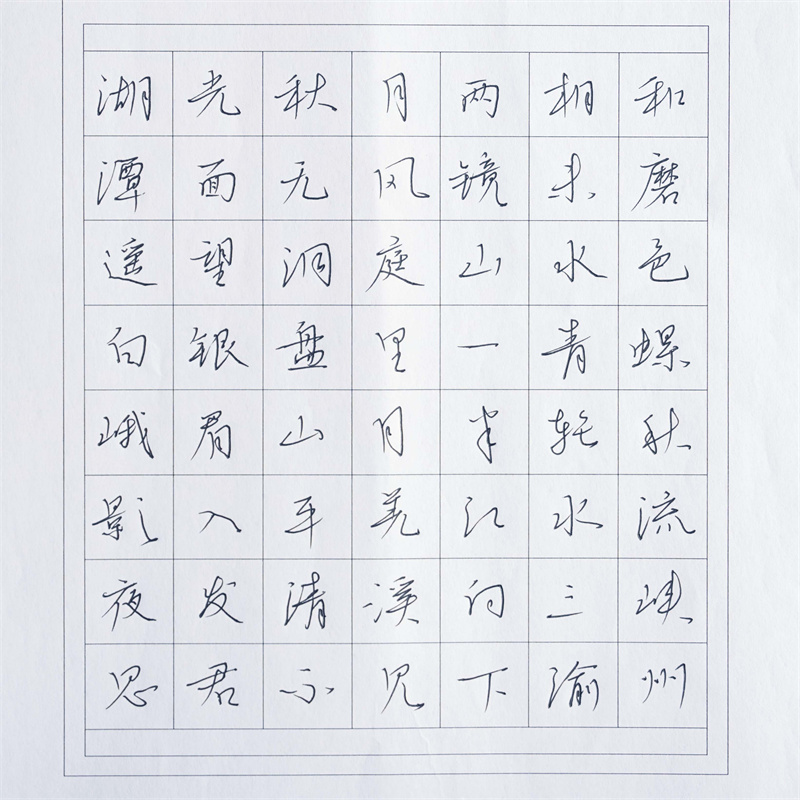 湖光秋月两相和
潭面无风镜未磨
遥望洞庭山水色
白银盘里一青螺
峨眉山月半轮秋
影入平羌江水流
夜发清溪向三峡
思君不见下渝州